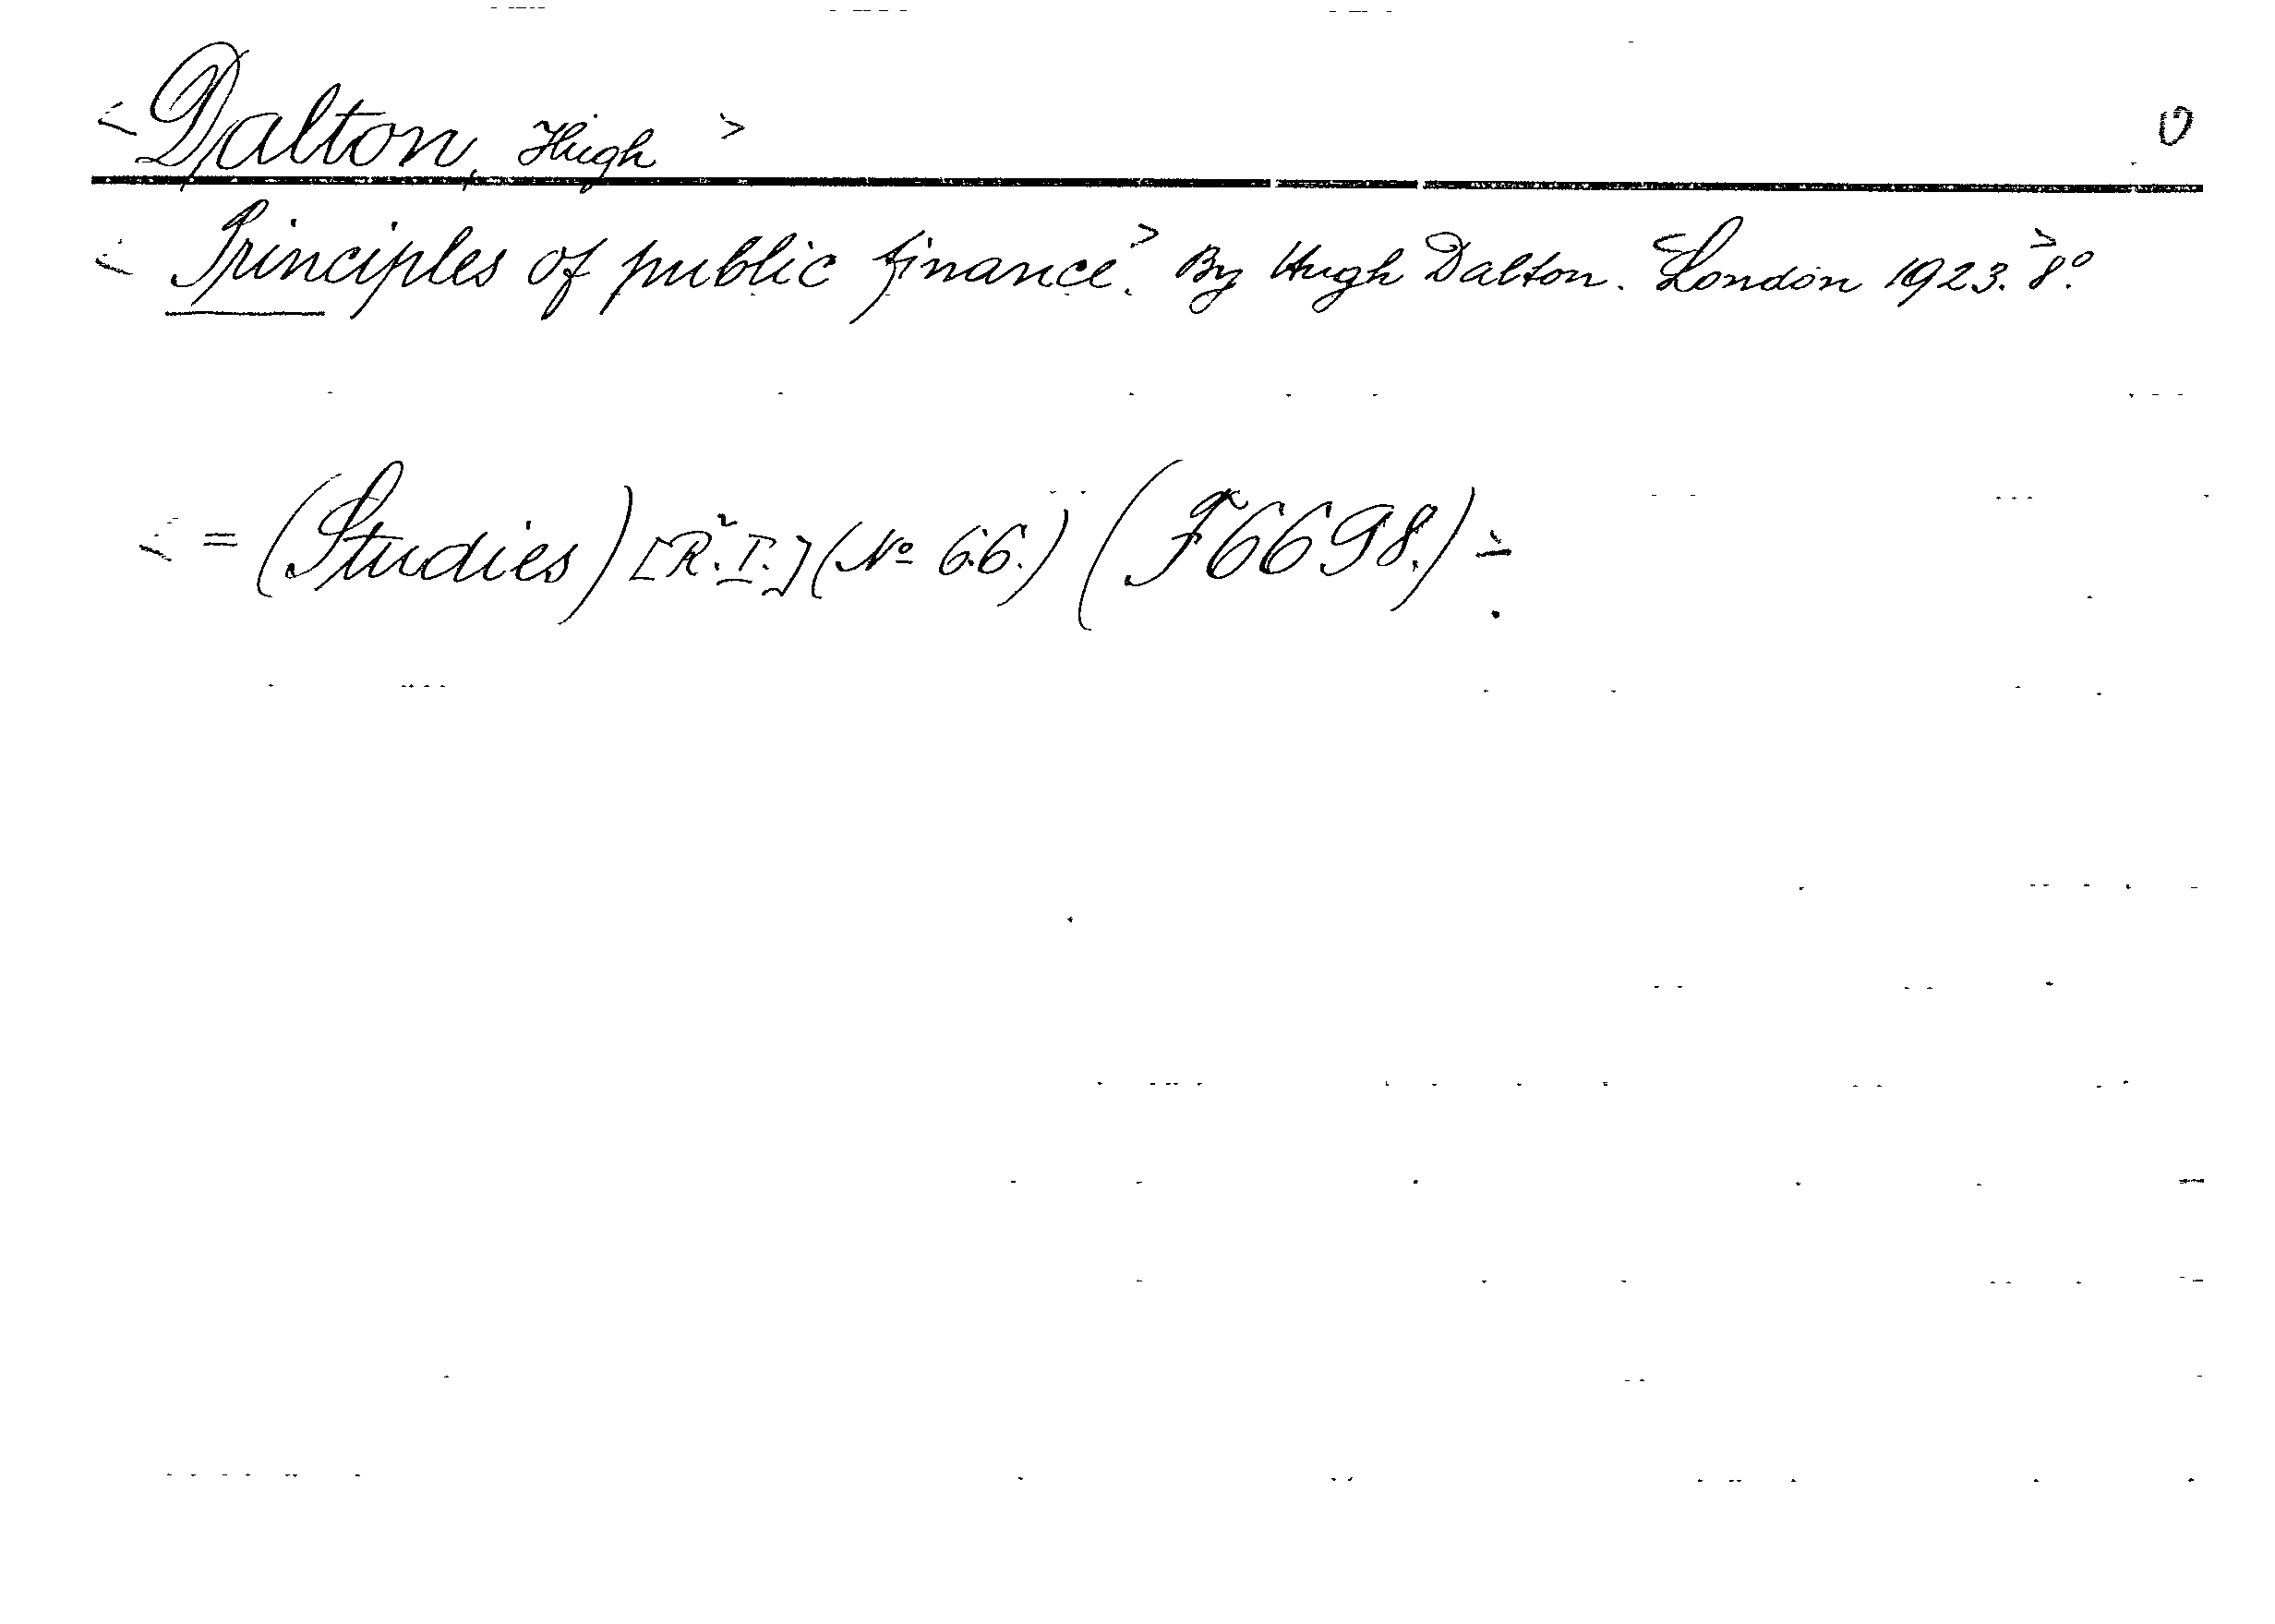 <Dalton, Hugh> O
<Principles of public finance.> By Hugh Dalton. <London 1923.> 8º.
<= (Studies) [R.I.] (Nº 66.) (F6698.)>.